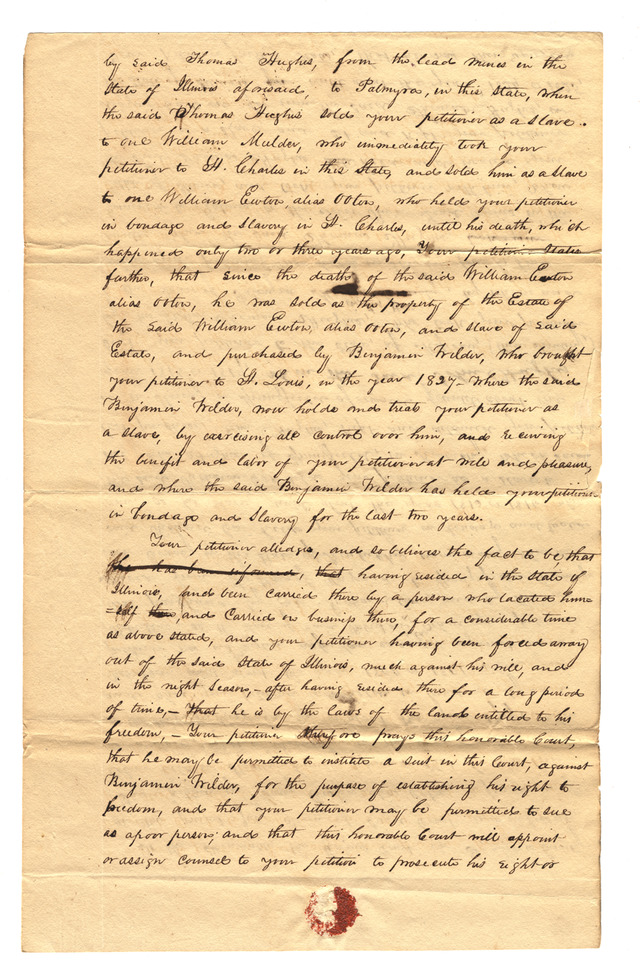 by said Thomas Hughes, from the lead mines in the
State of Illinois aforesaid, to Palmyra, in this State, when
the said Thomas Hughes sold your petitioner as a slave.
to one William Mulder, who immediately took your
petitioner to St. Charles in this State, and sold him as a slave
to one William Ewton, alias Ooton, who held your petitioner
in bondage and Slavery in St. Charles, until his death, which
happened only two or three years ago, Your petitioner States
further, that since the death of the said William Ewton
alias Ooton, he was sold as the property of the Estate of
the said William Ewton, alias Ooton, and slave of said
Estate, and purchased by Benjamin Wilder, who brought
your petitioner to St. Louis, in the year 1827 - where the said
Benjamin Wilder, now holds and treats your petitioner as
a slave, by exercising all control over him, and receiving
the benefit and labor of your petitioner at will and pleasure,
and where the said Benjamin Wilder has held your petitioner
in bondage and Slavery for the last two years.
Your petitioner alledges, and so believes the fact to be, that
he has been informed, that having resided in the State of
Illinois, and been carried there by a person who located him=
=self and carried on business there, for a considerable time
as above stated, and your petitioner having been forced away
out of the said State of Illinois, much against his will, and
in the night season, - after having resided there for a long period
of time, - that he is by the laws of the land entitled to his
freedom, - Your petitioner therefore prays this honorable Court,
that he may be permitted to institute a suit in this Court, against
Benjamin Wilder, for the purpose of establishing his right to
freedom, and that your petitioner may be permitted to sue
as a poor person; and that this honorable Court will appoint
or assign counsel to your petition to prosecute his right or